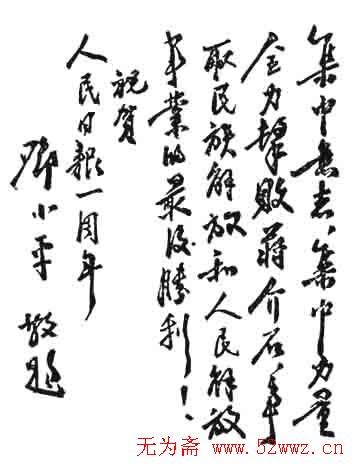 集中意志、集中力量
全力擊敗蔣介石、争
取民族解放和人民解放
事業的最後勝利！
祝賀
人民日報一周年
鄧小平 敬題
无为斋 www.52wwz.cn